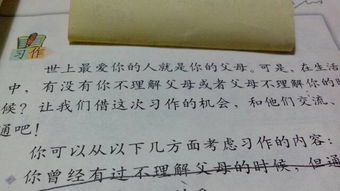 习作
世上最爱你的人就是你的父母。可是、在生活
中，有没有你不理解父母或者父母不理解你的时
候？让我们借这次习作的机会，和他们交流、
通吧！
你可以从以下几方面考虑习作的内容：
你曾经有过不理解父母的时候，但通